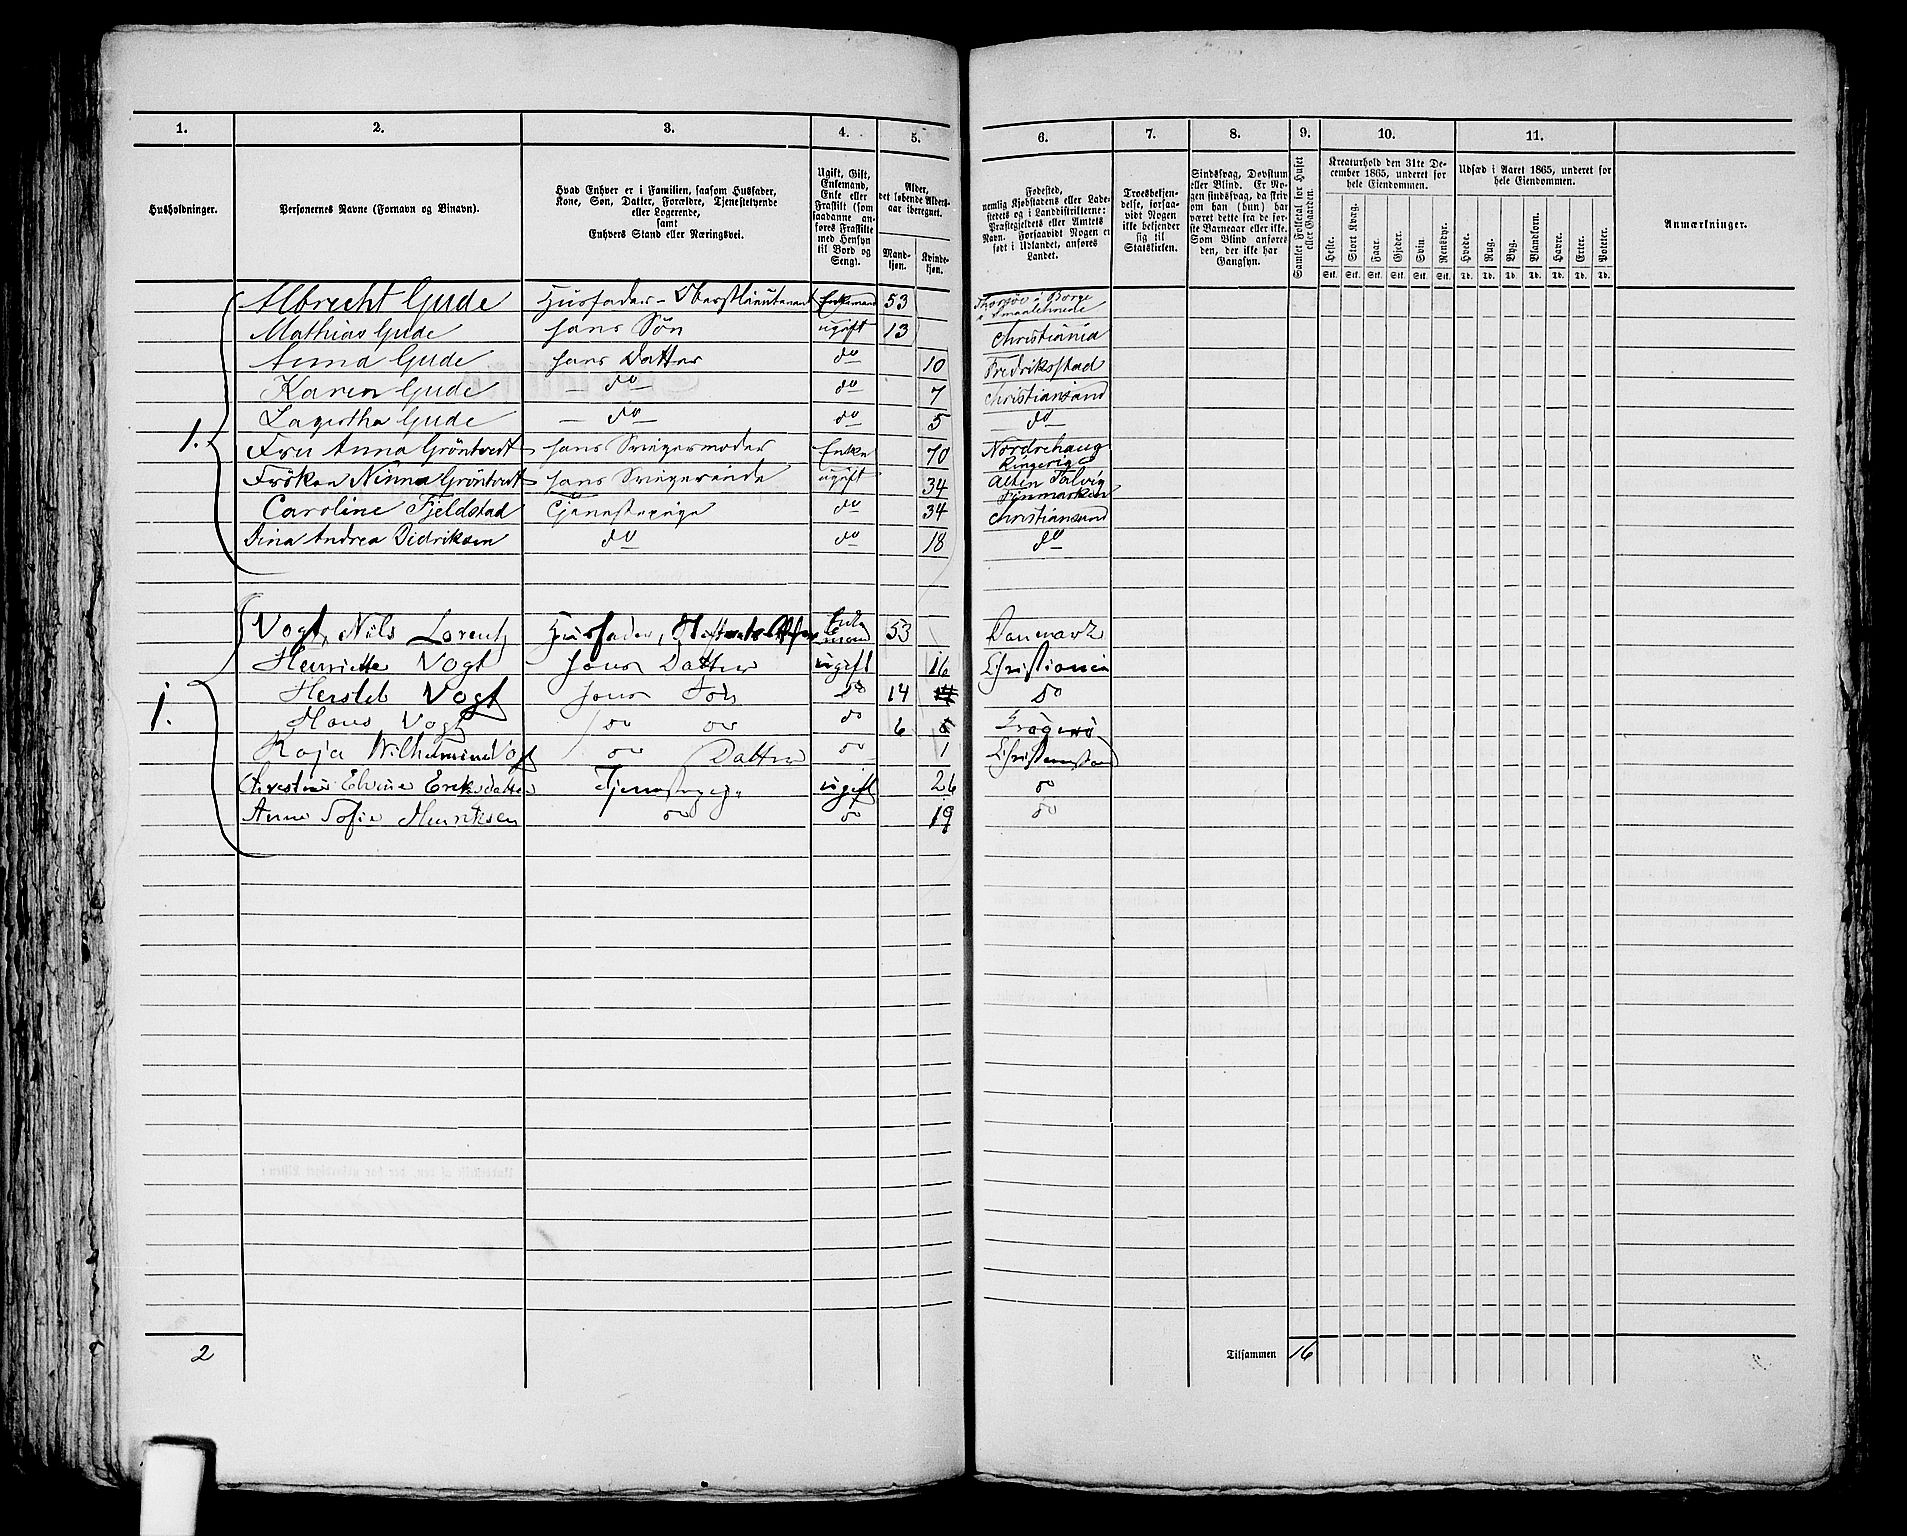 1. 2. 3. 4. 5. 6. 7. 8. 9. 10. 11.
Husholdninger.
Personernes Navne (Fornavn og Binavn).
Hvad Enhver er i Familien, saasom Husfader,
Kone, Søn, Datter, Forældre, Tjenestetyende
eller Logerende,
samt
Enhvers Stand eller Næringsvei.
Ugift, Gift,
Enkemand,
Enke eller
Fraskilt (som
saadanne an-
føres Fraskilte
med Hensyn
til Bord og
Seng).
Alder,
det løbende Alders-
aar iberegnet.
Mand-
kjøn.
Kvinde-
kjøn.
Fødested,
nemlig Kjøbstadens eller Lade-
stedets og i Landdistrikterne:
Præstegjeldets eller Amtets
Navn. Forsaavidt Nogen er
født i Udlandet, anføres
Landet.
Troesbekjen-
delse, forsaa-
vidt Nogen
ikke bekjender
sig til
Statskirken.
Sindssvag, Døvstum
eller Blind. Er No-
gen sindssvag, da skriv
om han (hun) har
været dette fra de før-
ste Barneaar eller ikke.
Som Blind anføres
den, der ikke har
Gangsyn.
Samlet Folketal for Huset
eller Gaarden.
Kreaturhold den 31te De-
cember 1865, underet for
hele Eiendommen.
Heste. Stort Kvæg. Faar. Gjeder. Svin. Rensdyr.
Stk. Stk. Stk. Stk. Stk. Stk.
Udsæd i Aaret 1865, underet for
hele Eiendommen.
Hvede. Rug. Byg. Blandkorn. Havre. Erter. Poteter.
Td. Td. Td. Td. Td. Td. Td.
Anmærkninger.
Albrecht Gude Husfader - Oberstlieutenant Enkemand 53 i Borge
Smaalehnene
Mathias Gude hans Søn ugift 13 Christiania
Anna Gude hans Datter do 10 Fredriksstad
Karen Gude do do 7 Christiansand
Lagertha Gude do do 5 do
1. Fru Anna Gröntvedt hans Svigermoder Enke 70 Nordrehaug
Ringerige
Fröken Ninna Gröntvedt hans Svigerinde ugift 34 Alten Talvig
Finmarken
Caroline Fjeldstad Tjenestepige do 34 Christiansand
Dina Andrea Didriksen do do 18 do
Vogt, Nils Lorentz Husfader, Enke
mand 53 Danmark
Henriette Vogt hans Datter ugift 16 Christiania
Hersleb Vogt hans Søn do 14 do
1. Hans Vogt do do do 6 Kragerø
Kaja Wilhelmine Vogt do Datter do 1 Christianssand
Christine Elvine Eriksdatter Tjenestepige ugift 26 do
Anne Sofie Henriksen do do 19 do
2 Tilsammen 16